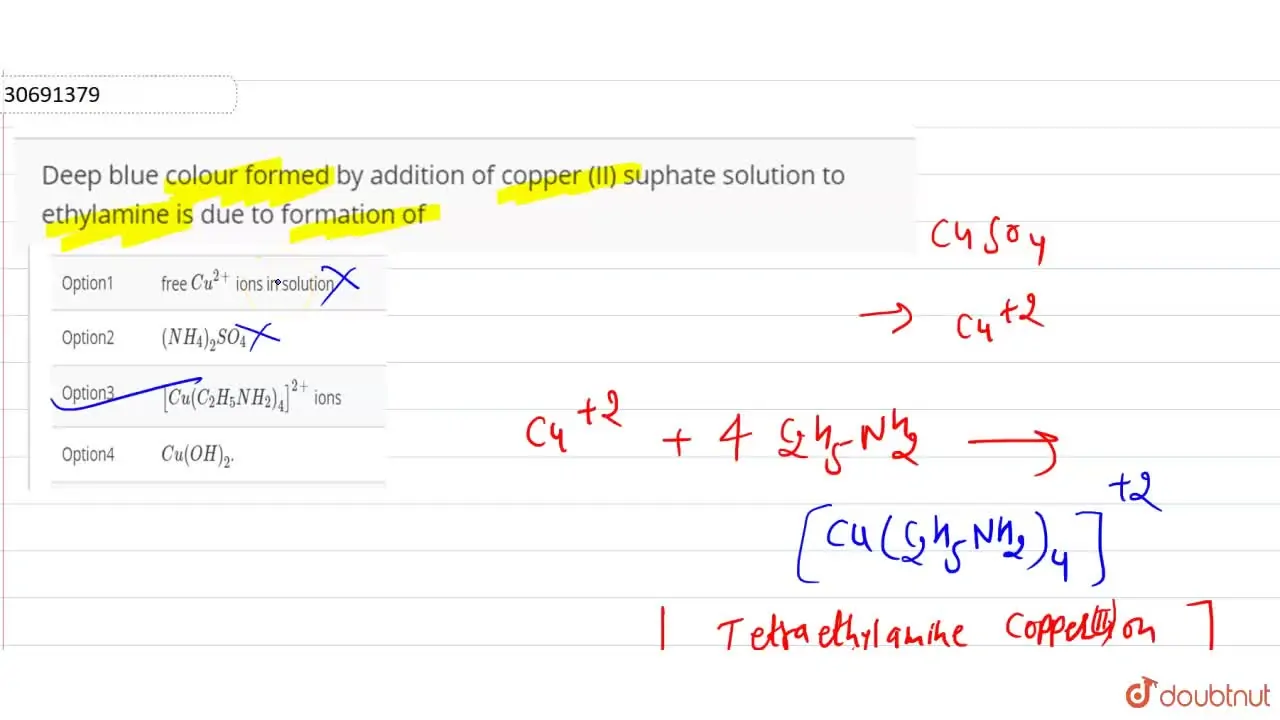 30691379
Deep blue colour formed by addition of copper (II) suphate solution to
ethylamine is due to formation of
Option1 free Cu²⁺ ions in solution
Option2 (NH₄)₂SO₄
Option3 [Cu(C₂H₅NH₂)₄]²⁺ ions
Option4 Cu(OH)₂.
CuSO₄
→ Cu⁺²
Cu⁺² + 4 C₂H₅-NH₂ →
[Cu(C₂H₅NH₂)₄]⁺²
[Tetraethylamine Copper(II) ion]
doubtnut